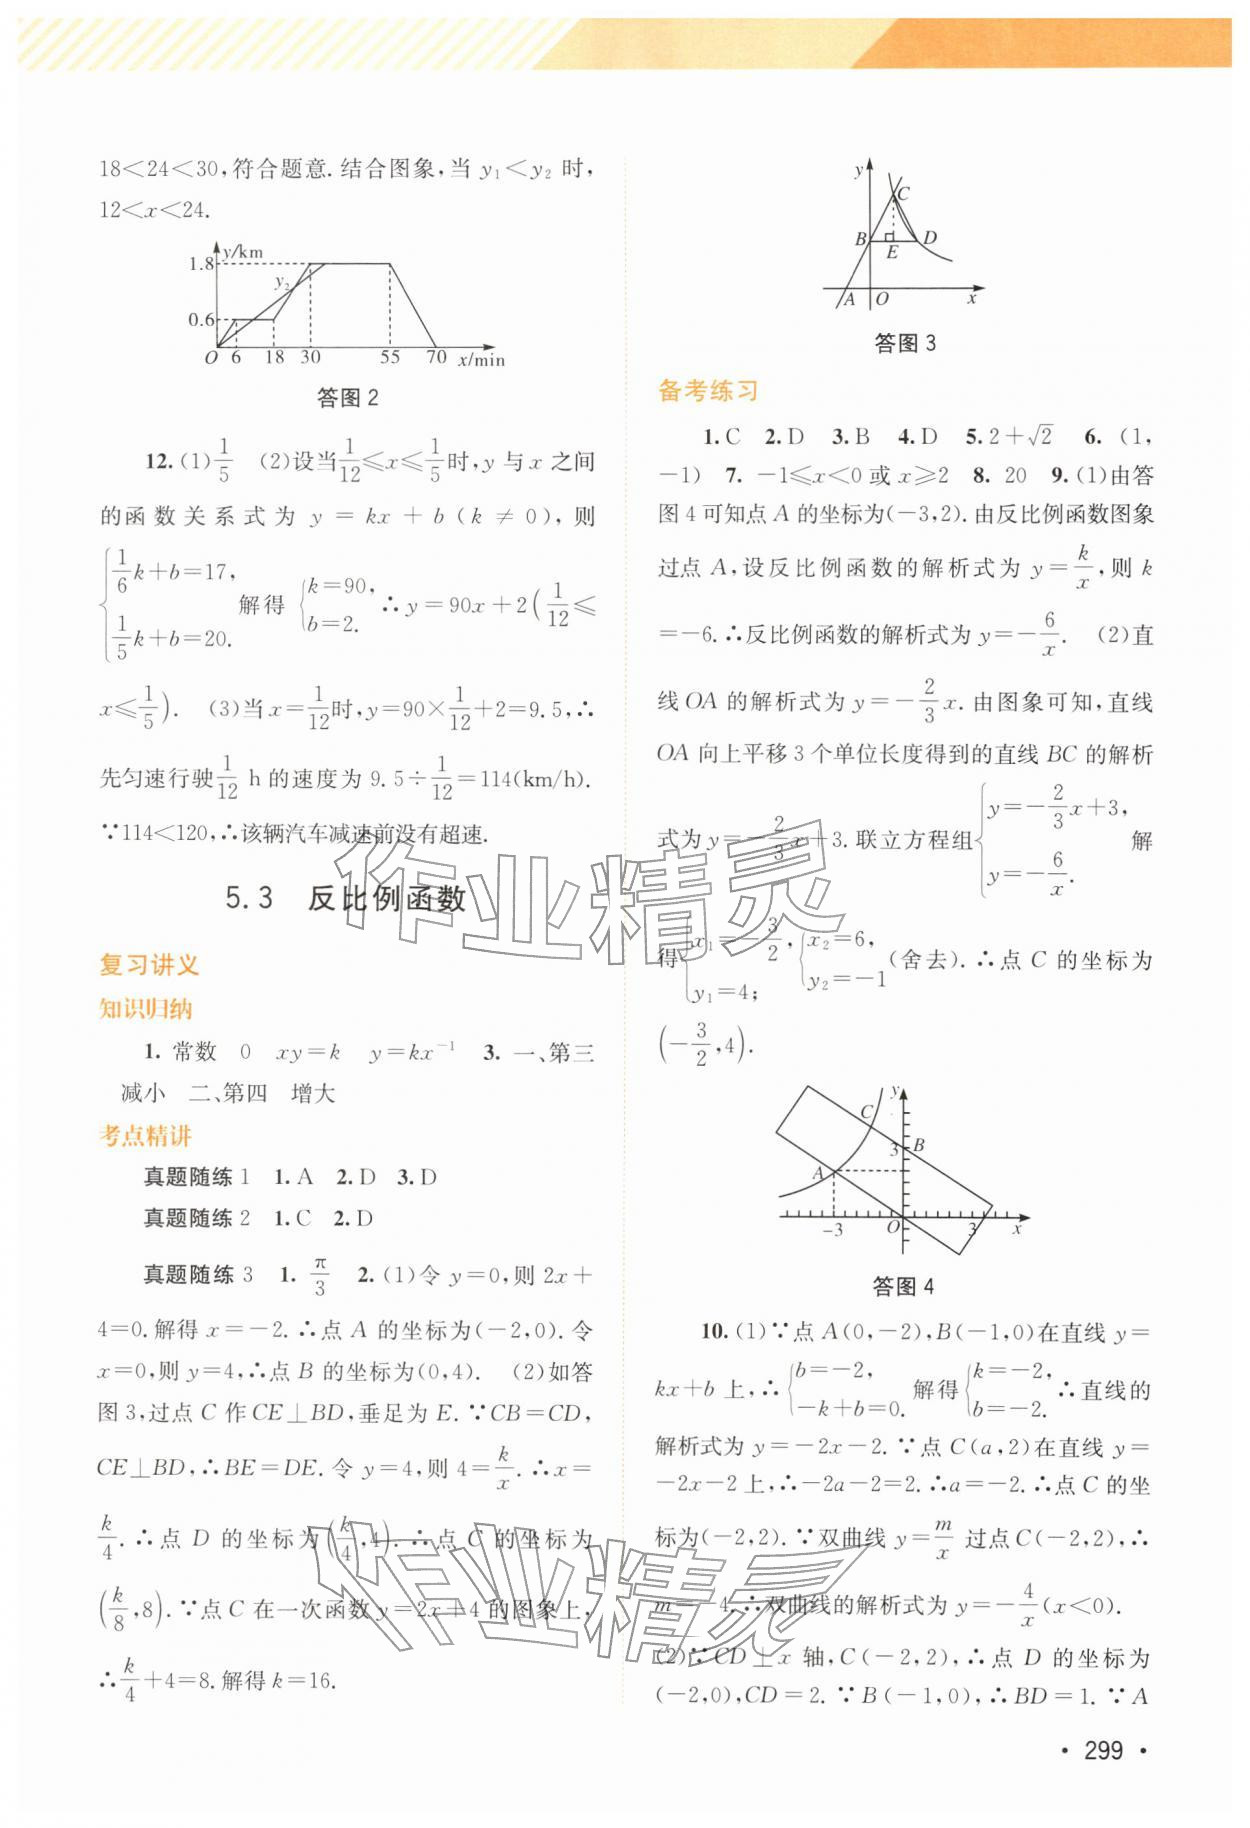 18<24<30,符合题意.结合图象,当 y₁<y₂ 时,
12<x<24.
y/km
1.8
y₂
0.6
O 6 18 30 55 70 x/min
答图 2
12.(1)1/5 (2)设当1/12≤x≤1/5时,y 与 x 之间
的函数关系式为 y=kx+b(k≠0),则
{1/6k+b=17, 1/5k+b=20. 解得 {k=90, b=2. ∴y=90x+2(1/12≤
x≤1/5). (3)当 x=1/12时,y=90×1/12+2=9.5,∴
先匀速行驶1/12 h 的速度为 9.5÷1/12=114(km/h).
∵114<120,∴该辆汽车减速前没有超速.
5.3 反比例函数
复习讲义
知识归纳
1. 常数 0 xy=k y=kx⁻¹ 3. 一、第三
减小 二、第四 增大
考点精讲
真题随练 1 1.A 2.D 3.D
真题随练 2 1.C 2.D
真题随练 3 1. π/3 2.(1)令 y=0,则 2x+
4=0.解得 x=-2.∴点 A 的坐标为(-2,0).令
x=0,则 y=4,∴点 B 的坐标为(0,4). (2)如答
图 3,过点 C 作 CE⊥BD,垂足为 E.∵CB=CD,
CE⊥BD,∴BE=DE.令 y=4,则 4=k/x.∴x=
k/4.∴点 D 的坐标为(k/4,4).∴点 C 的坐标为
(k/8,8).∵点 C 在一次函数 y=2x+4 的图象上,
∴k/4+4=8.解得 k=16.
y
C
B E D
A O x
答图 3
备考练习
1.C 2.D 3.B 4.D 5.2+√2 6.(1,
-1) 7. -1≤x<0 或 x≥2 8. 20 9.(1)由答
图 4 可知点 A 的坐标为(-3,2).由反比例函数图象
过点 A,设反比例函数的解析式为 y=k/x,则 k
=-6.∴反比例函数的解析式为 y=-6/x. (2)直
线 OA 的解析式为 y=-2/3x.由图象可知,直线
OA 向上平移 3 个单位长度得到的直线 BC 的解析
式为 y=-2/3x+3.联立方程组{y=-2/3x+3, y=-6/x. 解
得{x₁=-3/2, y₁=4; {x₂=6, y₂=-1 (舍去).∴点 C 的坐标为
(-3/2,4).
y
C
3 B
A
-3 O 3 x
答图 4
10.(1)∵点 A(0,-2),B(-1,0)在直线 y=
kx+b 上,∴{b=-2, -k+b=0. 解得{k=-2, b=-2. ∴直线的
解析式为 y=-2x-2.∵点 C(a,2)在直线 y=
-2x-2 上,∴-2a-2=2.∴a=-2.∴点 C 的坐
标为(-2,2).∵双曲线 y=m/x 过点 C(-2,2),∴
m=-4.∴双曲线的解析式为 y=-4/x(x<0).
(2)∵CD⊥x 轴,C(-2,2),∴点 D 的坐标为
(-2,0),CD=2.∵B(-1,0),∴BD=1.∵A
· 299 ·
作业精灵
作业精灵